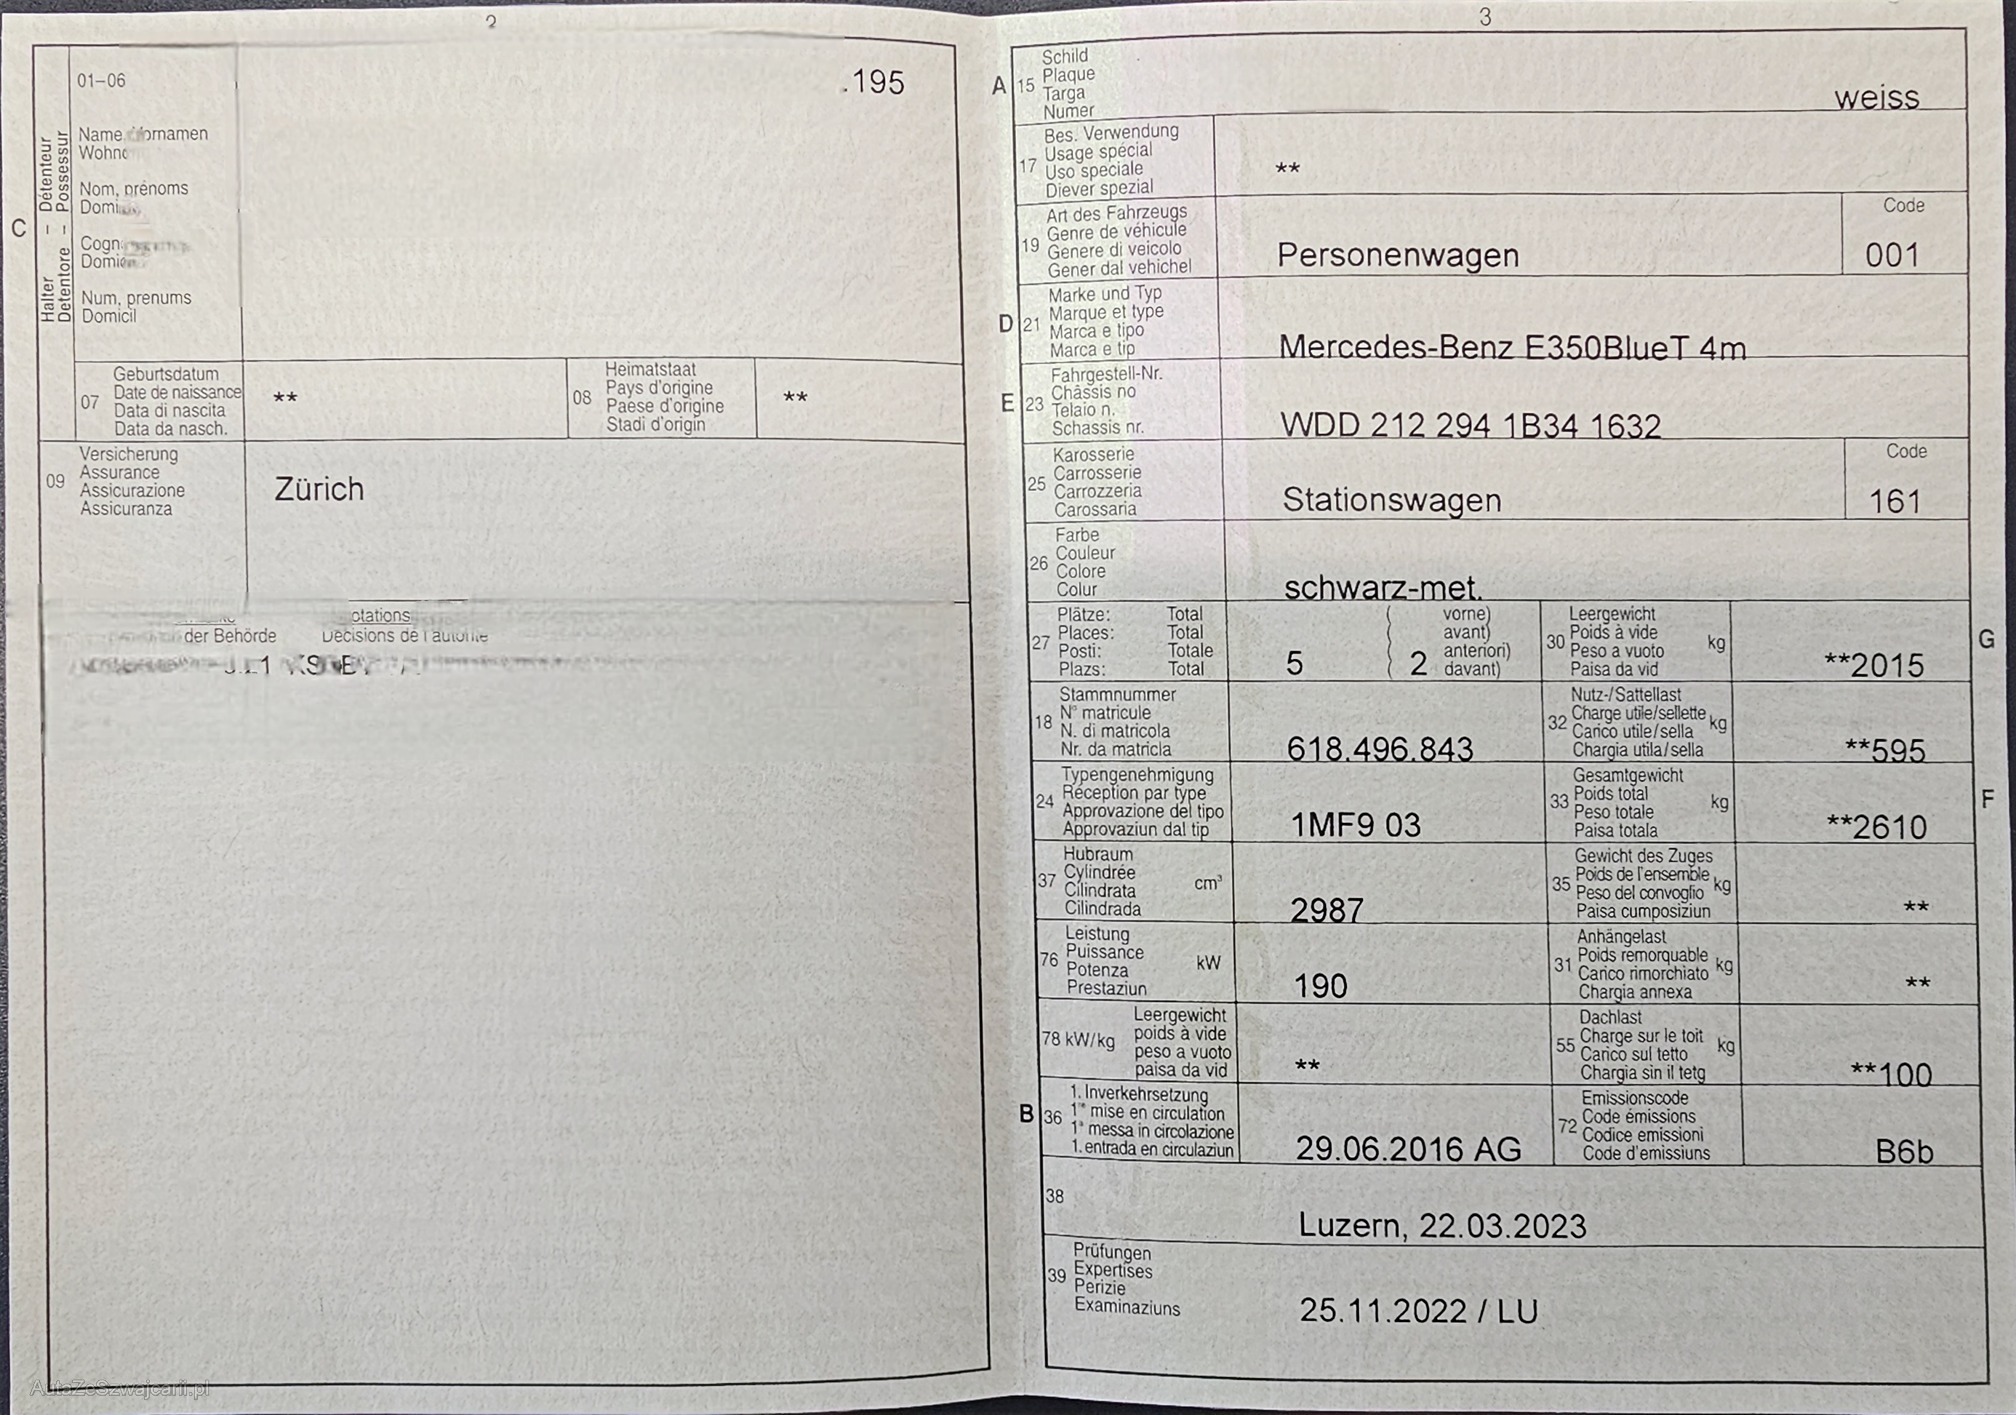 2
01–06
.195
Name,
ornamen
Wohn
Nom, prénoms
Domi
Cogn
Domi
Num, prenums
Domicil
C
Halter – Détenteur
Detentore – Possessur
07
Geburtsdatum
Date de naissance
Data di nascita
Data da nasch.
**
08
Heimatstaat
Pays d'origine
Paese d'origine
Stadi d'origin
**
09
Versicherung
Assurance
Assicurazione
Assicuranza
Zürich
der Behörde
Décisions de l'autorité
AutoZeSzwajcarii.pl
3
A 15
Schild
Plaque
Targa
Numer
weiss
17
Bes. Verwendung
Usage spécial
Uso speciale
Diever spezial
**
19
Art des Fahrzeugs
Genre de véhicule
Genere di veicolo
Gener dal vehichel
Personenwagen
Code
001
D 21
Marke und Typ
Marque et type
Marca e tipo
Marca e tip
Mercedes-Benz E350BlueT 4m
E 23
Fahrgestell-Nr.
Châssis no
Telaio n.
Schassis nr.
WDD 212 294 1B34 1632
25
Karosserie
Carrosserie
Carrozzeria
Carossaria
Stationswagen
Code
161
26
Farbe
Couleur
Colore
Colur
schwarz-met.
27
Plätze: Total
Places: Total
Posti: Totale
Plazs: Total
5 ( 2
vorne)
avant)
anteriori)
davant)
30
Leergewicht
Poids à vide
Peso a vuoto
Paisa da vid
kg
**2015
G
18
Stammnummer
N° matricule
N. di matricola
Nr. da matricla
618.496.843
32
Nutz-/Sattellast
Charge utile/sellette
Carico utile/sella
Chargia utila/sella
kg
**595
24
Typengenehmigung
Réception par type
Approvazione del tipo
Approvaziun dal tip
1MF9 03
33
Gesamtgewicht
Poids total
Peso totale
Paisa totala
kg
**2610
F
37
Hubraum
Cylindrée
Cilindrata
Cilindrada
cm³
2987
35
Gewicht des Zuges
Poids de l'ensemble
Peso del convoglio
Paisa cumposiziun
kg
**
76
Leistung
Puissance
Potenza
Prestaziun
kW
190
31
Anhängelast
Poids remorquable
Carico rimorchiato
Chargia annexa
kg
**
78 kW/kg
Leergewicht
poids à vide
peso a vuoto
paisa da vid
**
55
Dachlast
Charge sur le toit
Carico sul tetto
Chargia sin il tetg
kg
**100
B 36
1. Inverkehrsetzung
1re mise en circulation
1a messa in circolazione
1. entrada en circulaziun
29.06.2016 AG
72
Emissionscode
Code émissions
Codice emissioni
Code d'emissiuns
B6b
38
Luzern, 22.03.2023
39
Prüfungen
Expertises
Perizie
Examinaziuns
25.11.2022 / LU